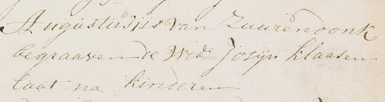 Augustus van Zuurendonk
begraaven de Wed: Josijn Klaasen
laat na kinderen